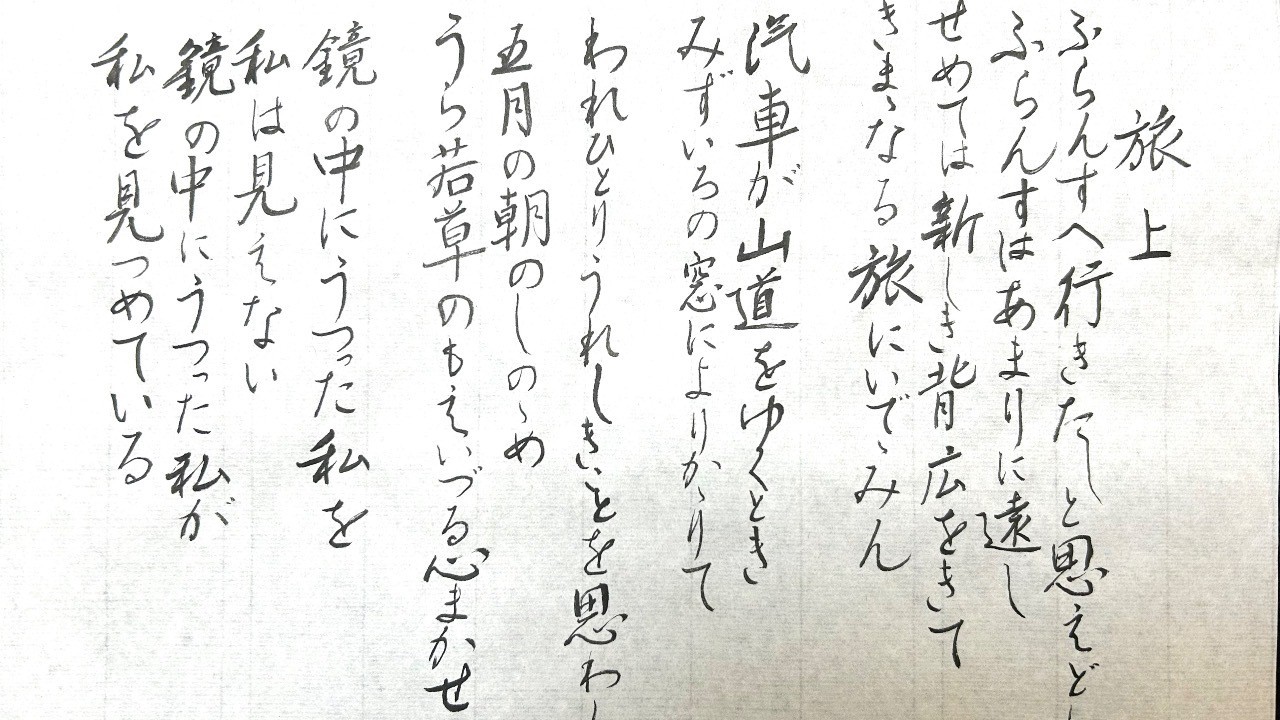 旅上
ふらんすへ行きたしと思えども
ふらんすはあまりに遠し
せめては新しき背広をきて
きまゝなる旅にいでゝみん
汽車が山道をゆくとき
みずいろの窓によりかゝりて
われひとりうれしきことを思わん
五月の朝のしのゝめ
うら若草のもえいづる心まかせ
鏡の中にうつった私を
私は見えない
鏡の中にうつった私が
私を見つめている